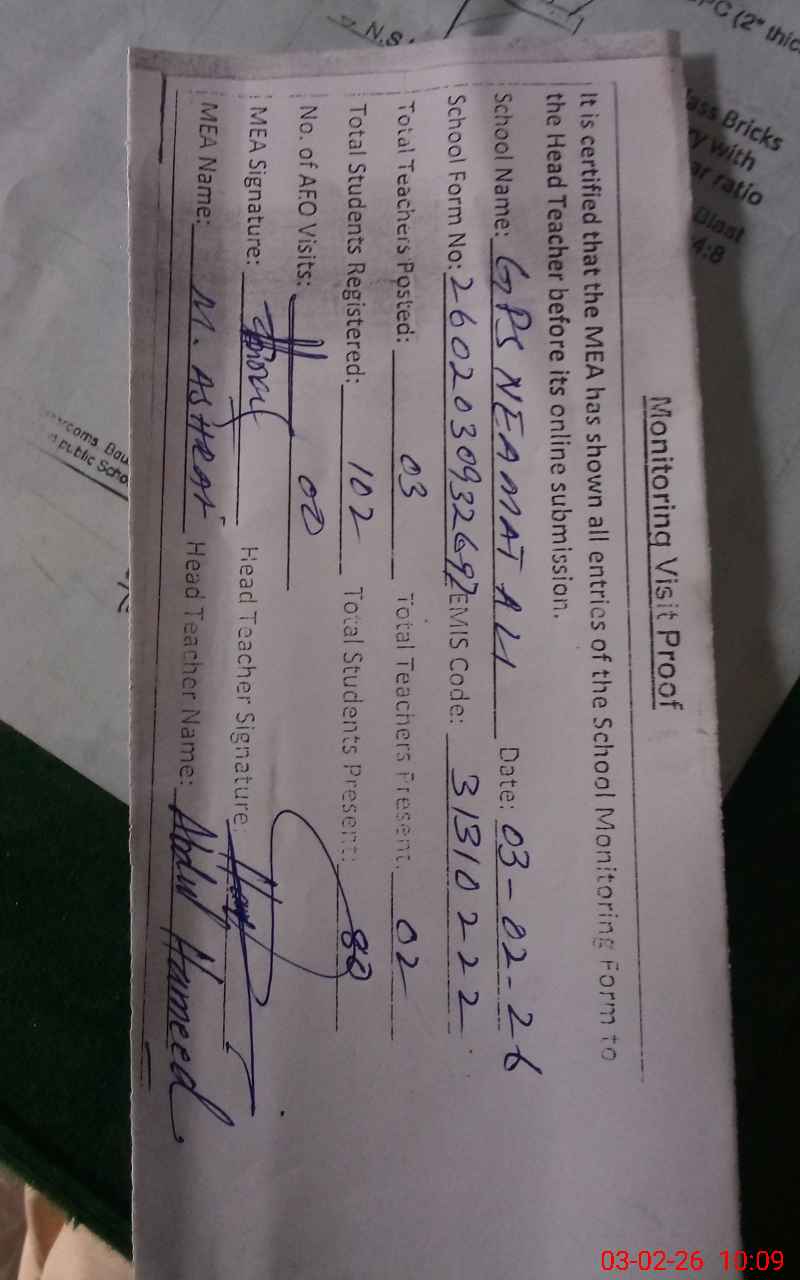 Monitoring Visit Proof
It is certified that the MEA has shown all entries of the School Monitoring Form to
the Head Teacher before its online submission.
School Name: GPS NEAMAT ALI Date: 03-02-26
School Form No: EMIS Code: 31310222
Total Teachers Posted: 03 Total Teachers Present. 02
Total Students Registered: 102 Total Students Present: 80
No. of AEO Visits: 00
MEA Signature: Head Teacher Signature:
MEA Name: M. ASHRAF Head Teacher Name: Abdul Hameed
PC (2" thic
N.S
ass Bricks
ry with
ar ratio
Blast
4:8
public Scho
03-02-26 10:09